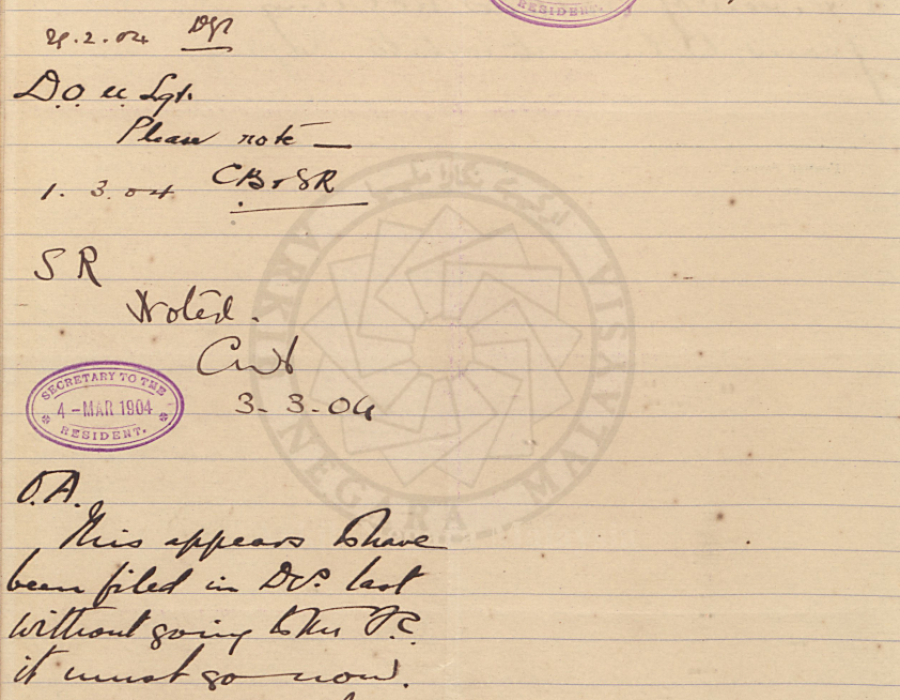 RESIDENT.
29.2.04
D.O. U. Lgt.
Please note —
1. 3. 04 CB r SR
S R
Noted.
3. 3. 04
SECRETARY TO THE
4 - MAR 1904
RESIDENT.
O.A.
This appears to have
been filed in Dec. last
without going to the
it must go now.
ARKIB NEGARA MALAYSIA